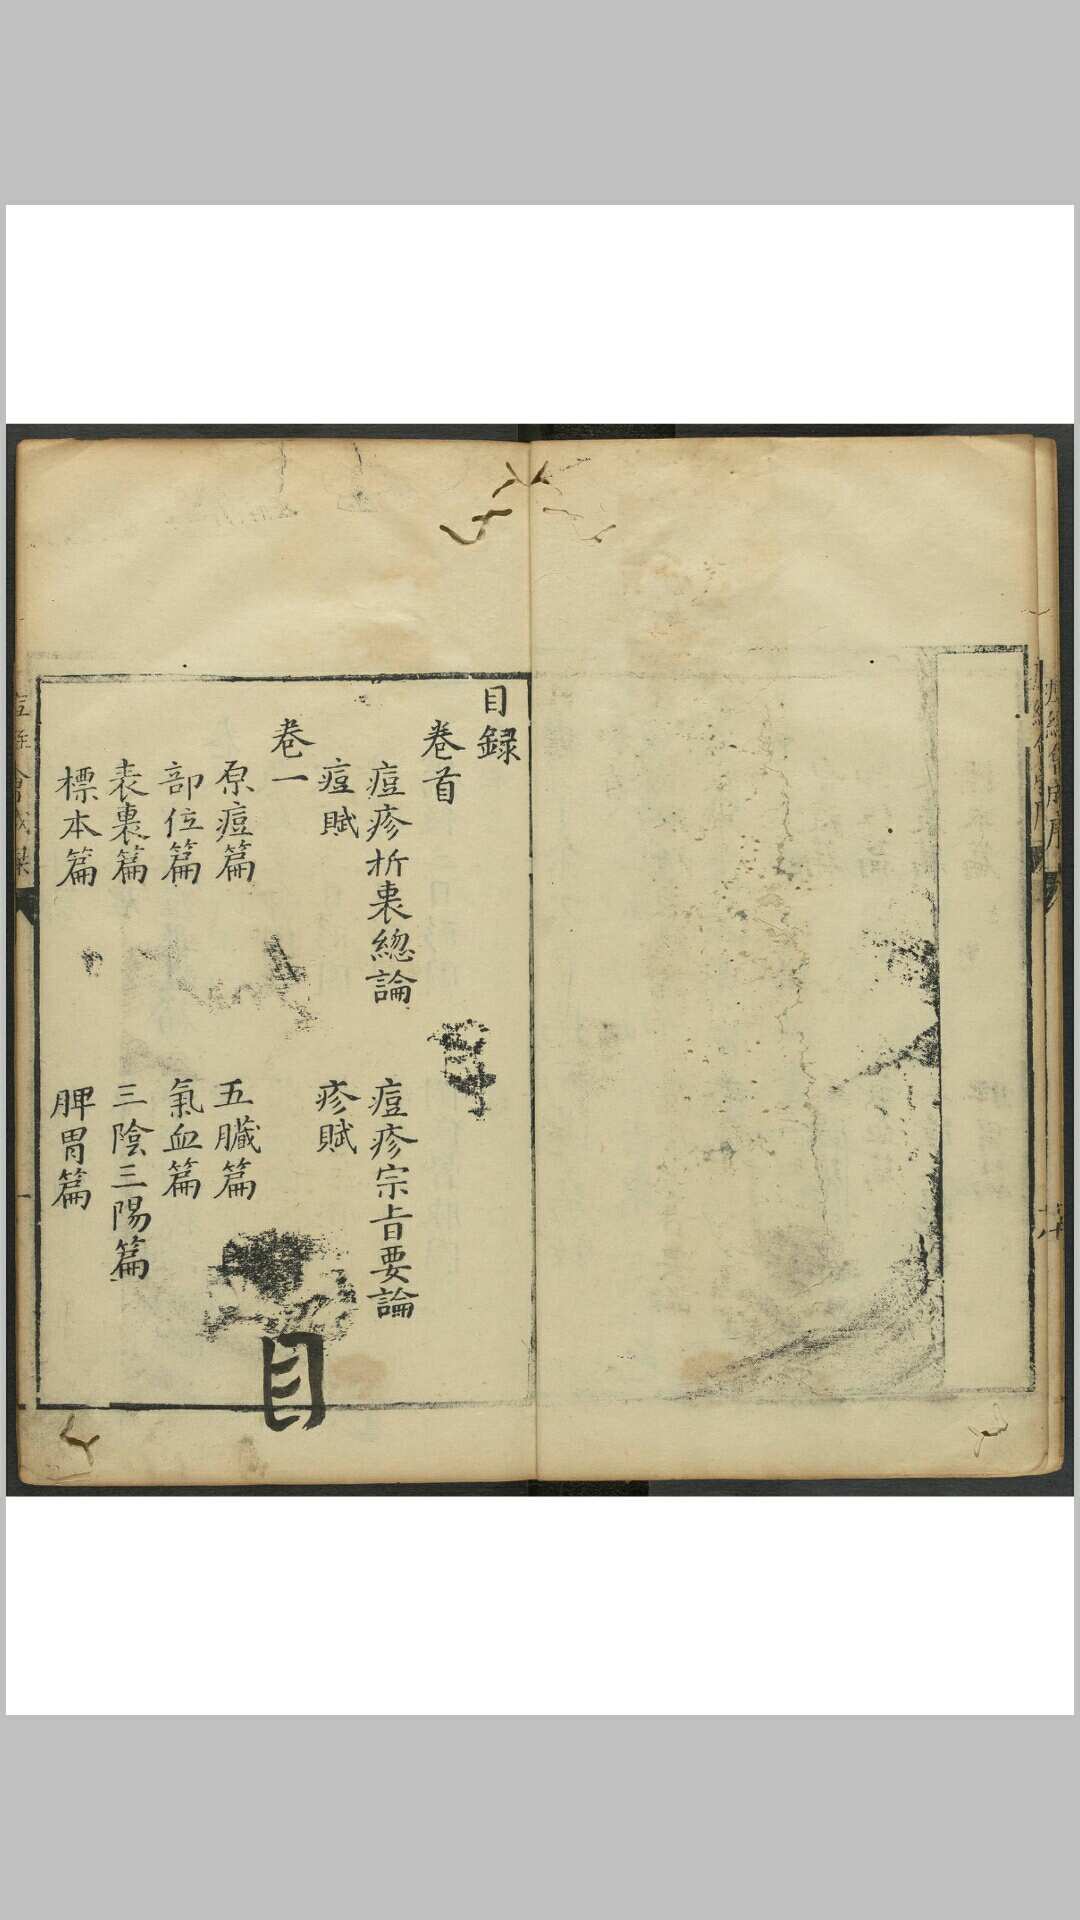 目録
卷首
痘疹折衷總論 痘疹宗旨要論
痘賦 疹賦
卷一
原痘篇 五臟篇
部位篇 氣血篇
表裏篇 三陰三陽篇
標本篇 脾胃篇
目